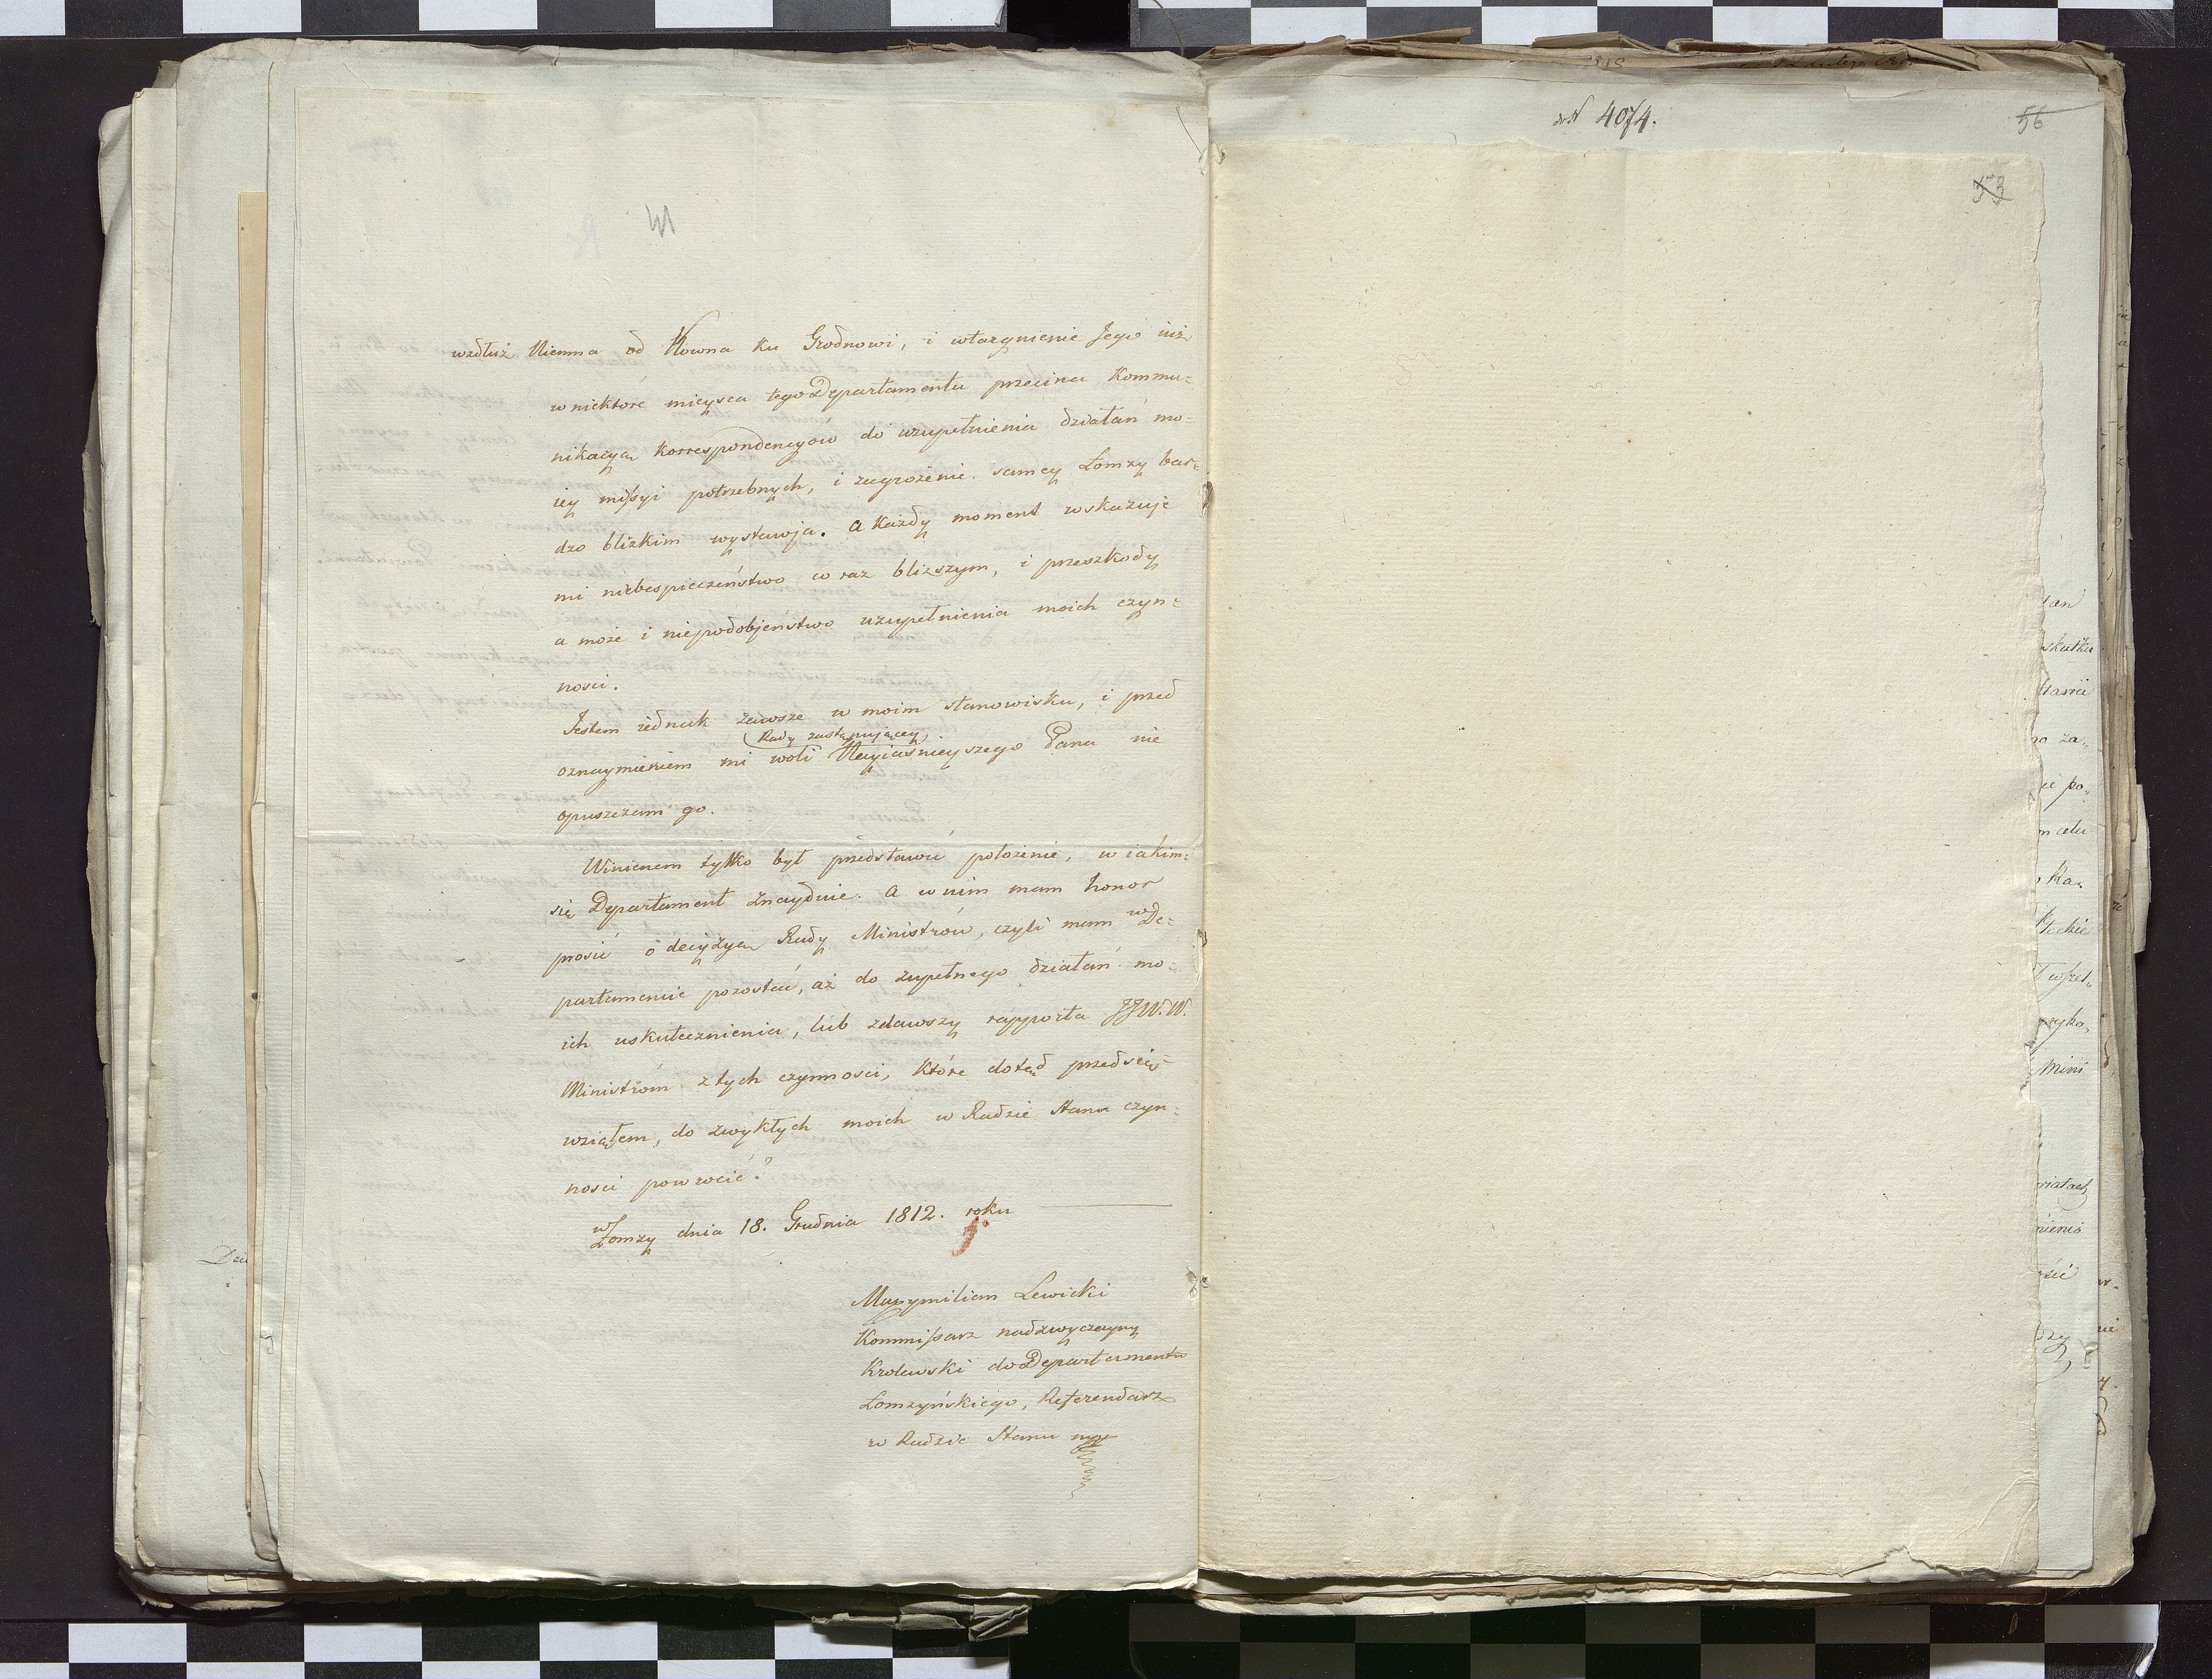 wzdłuż Niemna od Kowna ku Grodnowi, i wtargnienie Jego iuż
w niektóre mieysca tego Departamentu przecina Kommu-
nikacyą Korrespondencyów do uzupełnienia działań mo-
iey missyi potrzebnych, i zagrożenie samey Łomży bar-
dzo blizkim wystawia. a Każdy moment wskazuje
mi niebespieczeństwo co raz bliższym, i przeszkody
a może i niepodobieństwo uzupełnienia moich czyn-
nosci.
Jestem iednak zawsze w moim stanowisku, i przed
(Rady zastępuiącey)
oznaymieniem mi woli Nayiaśnieyszego Pana nie
opuszczam go.
Winienem tylko był przedstawić położenie, w iakim-
się Departament znayduie. a w nim mam honor
prosić o decyzyą Rady Ministrów, czyli mam w De-
partamencie pozostać, aż do zupełnego działań mo-
ich uskutecznienia, lub zdawszy rapporta JJW.W.
Ministróm z tych czynnosci, które dotąd przedsię-
wziąłem, do zwykłych moich w Radzie Stanu czyn-
nosci powrocić?
w Łomży dnia 18. Grudnia 1812. roku
Maxymilian Lewicki
Kommissarz nadzwyczayny
Krolewski do Departamentu
Łomzyńskiego, Referendarz
w Radzie Stanu mp
do N 4074.
56
53